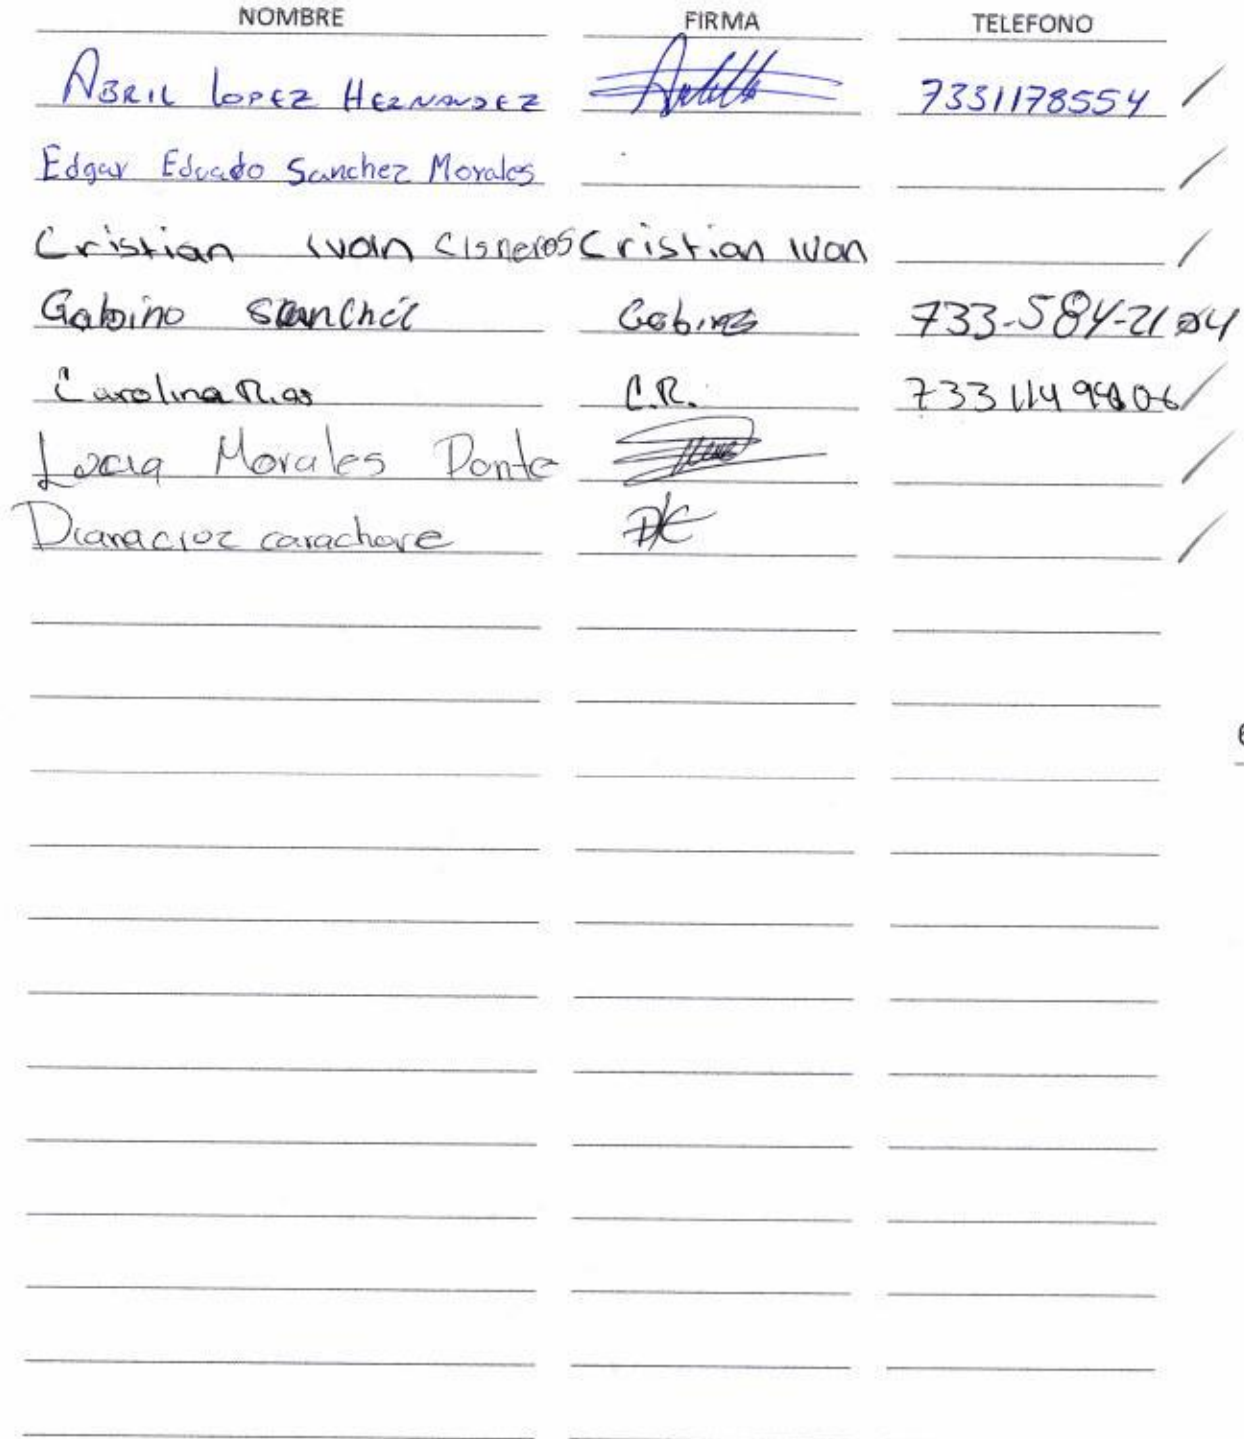 NOMBRE FIRMA TELEFONO
ABRIL LOPEZ HERNANDEZ 7331178554
Edgar Eduado Sanchez Morales
Cristian Ivan Cisneros Cristian Ivan
Gabino Sanchez Gabino 733-584-2104
Carolina Rios C.R.
Lucia Morales Ponte
Diana cruz carachore DC
6